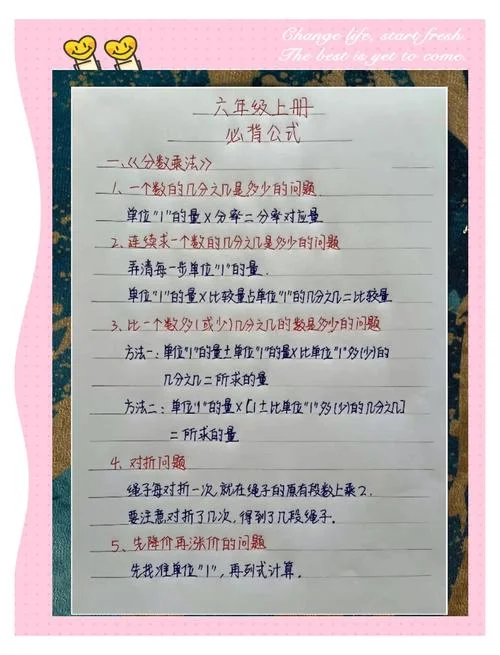 Change life, start fresh.
The best is yet to come.
六年级上册
必背公式
一、《分数乘法》
1、一个数的几分之几是多少的问题
单位"1"的量×分率=分率对应量
2、连续求一个数的几分之几是多少的问题
弄清每一步单位"1"的量.
单位"1"的量×比较量占单位"1"的几分之几=比较量
3、比一个数多(或少)几分之几的数是多少的问题
方法一:单位"1"的量±单位"1"的量×比单位"1"多(少)的
几分之几=所求的量
方法二:单位"1"的量×[1±比单位"1"多(少)的几分之几]
=所求的量
4、对折问题
绳子每对折一次,就在绳子的原有段数上乘2.
要注意对折了几次,得到了几段绳子.
5、先降价再涨价的问题
先找准单位"1",再列式计算.